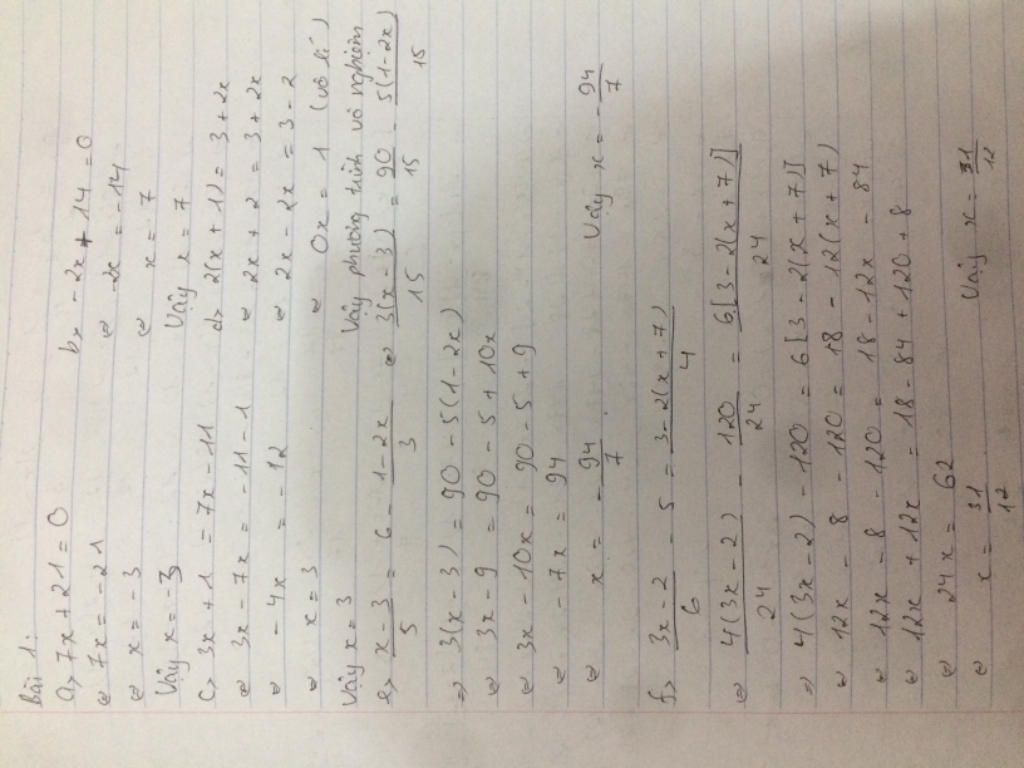 Bài 1:
a, 7x + 21 = 0
⇔ 7x = -21
⇔ x = -3
Vậy x = -3
b, -2x + 14 = 0
⇔ -2x = -14
⇔ x = 7
Vậy x = 7
c, 3x + 1 = 7x - 11
⇔ 3x - 7x = -11 - 1
⇔ -4x = -12
⇔ x = 3
Vậy x = 3
d, 2(x + 1) = 3 + 2x
⇔ 2x + 2 = 3 + 2x
⇔ 2x - 2x = 3 - 2
⇔ 0x = 1 (vô lí)
Vậy phương trình vô nghiệm
e, (x - 3)/5 = 6 - (1 - 2x)/3 ⇔ 3(x - 3)/15 = 90/15 - 5(1 - 2x)/15
⇒ 3(x - 3) = 90 - 5(1 - 2x)
⇔ 3x - 9 = 90 - 5 + 10x
⇔ 3x - 10x = 90 - 5 + 9
⇔ -7x = 94
⇔ x = -94/7 Vậy x = -94/7
f, (3x - 2)/6 - 5 = (3 - 2(x + 7))/4
⇔ 4(3x - 2)/24 - 120/24 = 6[3 - 2(x + 7)]/24
⇒ 4(3x - 2) - 120 = 6[3 - 2(x + 7)]
⇔ 12x - 8 - 120 = 18 - 12(x + 7)
⇔ 12x - 8 - 120 = 18 - 12x - 84
⇔ 12x + 12x = 18 - 84 + 120 + 8
⇔ 24x = 62
⇔ x = 31/12 Vậy x = 31/12